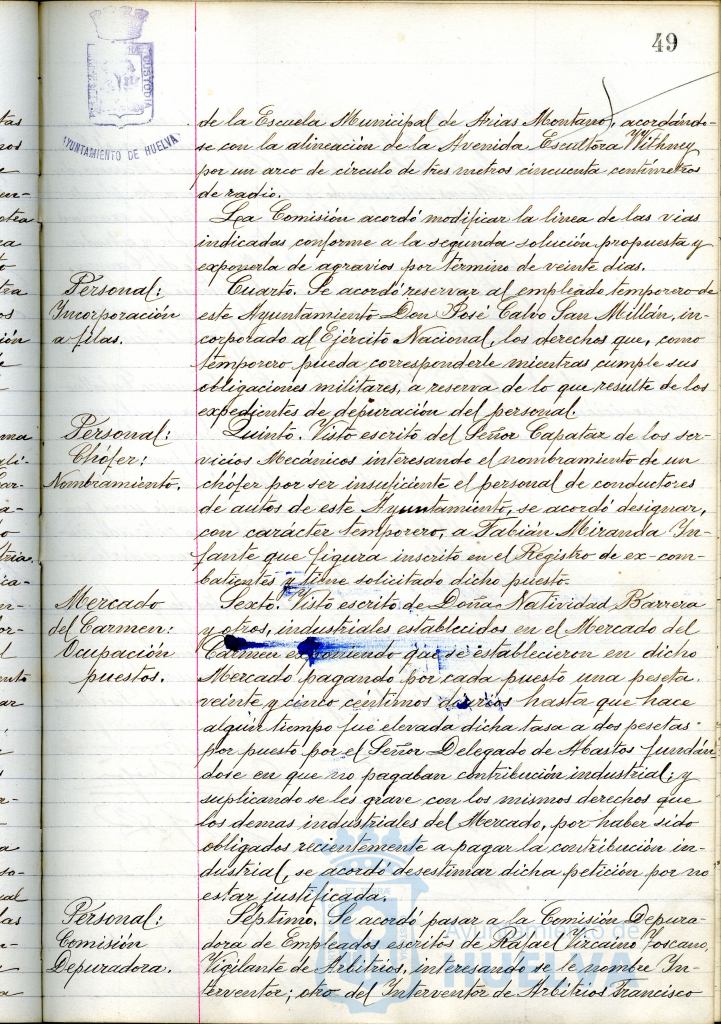 49
PORTUS MARIS ET TERRAE CUSTODIA
AYUNTAMIENTO DE HUELVA
de la Escuela Municipal de Arias Montano, acordándo-
se con la alineación de la Avenida Escultora Withney
por un arco de circulo de tres metros cincuenta centímetros
de radio.
La Comisión acordó modificar la linea de las vias
indicadas conforme a la segunda solución propuesta y
exponerla de agravios por término de veinte días.
Personal:
Incorporación
a filas.
Cuarto. Se acordó reservar al empleado temporero de
este Ayuntamiento Don José Calvo San Millán, in-
corporado al Ejército Nacional, los derechos que, como
temporero pueda corresponderle mientras cumple sus
obligaciones militares, a reserva de lo que resulte de los
expedientes de depuración del personal.
Personal:
Chófer:
Nombramiento.
Quinto. Visto escrito del Señor Capataz de los ser-
vicios Mecánicos interesando el nombramiento de un
chófer por ser insuficiente el personal de conductores
de autos de este Ayuntamiento, se acordó designar,
con carácter temporero, a Fabián Miranda In-
fante que figura inscrito en el Registro de ex-com-
batientes y tiene solicitado dicho puesto.
Mercado
del Carmen:
Ocupación
puestos.
Sexto. Visto escrito de Doña Natividad Barrera
y otros, industriales establecidos en el Mercado del
Carmen exponiendo que se establecieron en dicho
Mercado pagando por cada puesto una peseta
veinte y cinco céntimos diarios hasta que hace
algún tiempo fué elevada dicha tasa a dos pesetas
por puesto por el Señor Delegado de Abastos fundán-
dose en que no pagaban contribución industrial; y
suplicando se les grave con los mismos derechos que
los demas industriales del Mercado, por haber sido
obligados recientemente a pagar la contribución in-
dustrial, se acordó desestimar dicha petición por no
estar justificada.
Personal:
Comisión
Depuradora.
Séptimo. Se acordó pasar a la Comisión Depura-
dora de Empleados escritos de Rafael Vizcaino Toscano,
Vigilante de Arbitrios, interesando se le nombre In-
terventor; otro del Interventor de Arbitrios Francisco
Ayuntamiento de
HUELVA